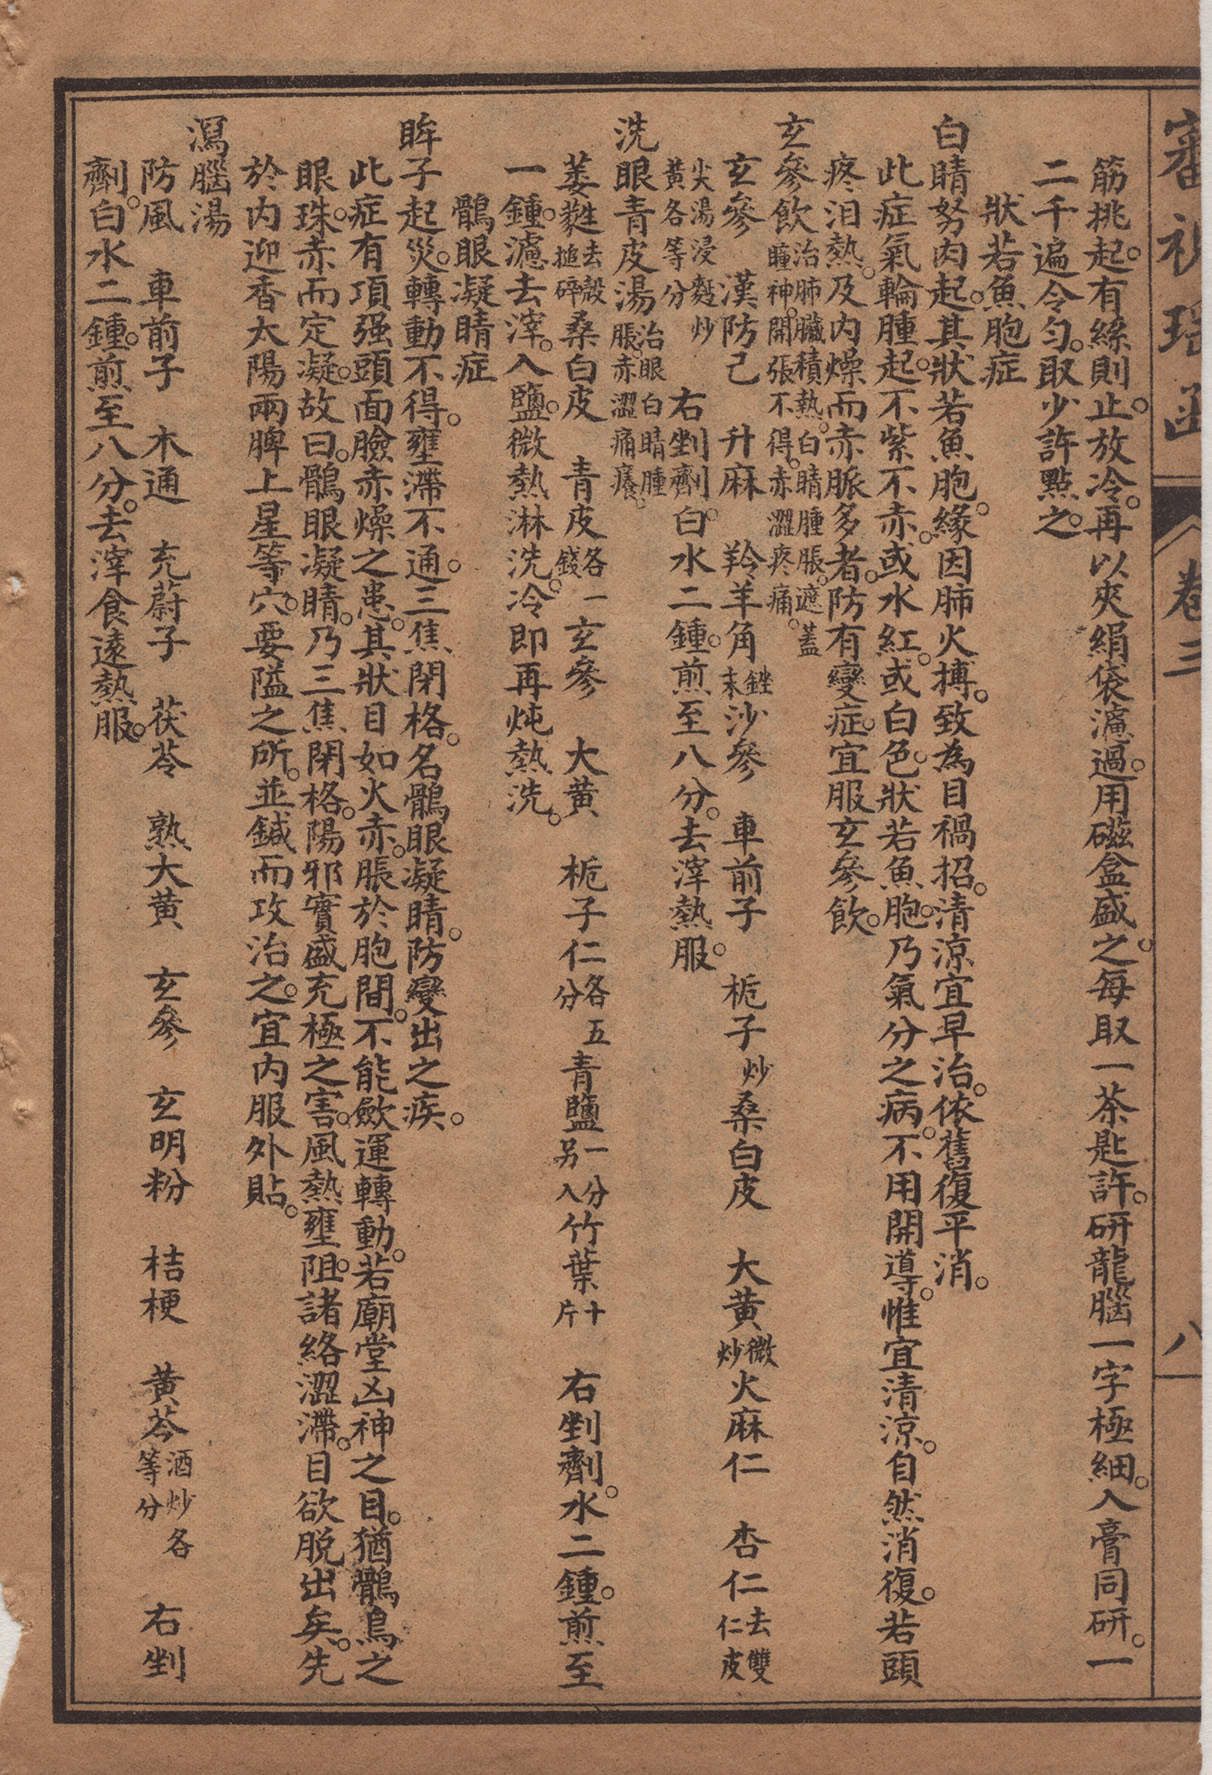 審視瑤函 卷三 八
筋挑起。有絲則止。放冷。再以夾絹袋濾過。用磁盒盛之。每取一茶匙許。研龍腦一字極細。入膏同研。一
二千遍令勻。取少許點之。
狀若魚胞症
白睛努肉起。其狀若魚胞。緣因肺火搏。致為目禍招。清涼宜早治。依舊復平消。
此症氣輪腫起。不紫不赤。或水紅。或白色。狀若魚胞。乃氣分之病。不用開導。惟宜清涼。自然消復。若頭
疼泪熱。及內燥而赤脈多者。防有變症。宜服玄參飲。
玄參飲 治肺臟積熱。白睛腫脹。遮蓋瞳神。開張不得。赤澀疼痛。
玄參 漢防己 升麻 羚羊角 銼末 沙參 車前子 梔子 炒 桑白皮 大黃 微炒 火麻仁 杏仁 去雙仁皮
尖湯浸麩炒黃各等分 右剉劑。白水二鍾。煎至八分。去滓熱服。
洗眼青皮湯 治眼白睛腫脹。赤澀痛癢。
萎蕤 生去殼搥碎 桑白皮 青皮 各一錢 玄參 大黃 梔子仁 各五分 青鹽 一分另入 竹葉 十片 右剉劑。水二鍾。煎至
一鍾。濾去滓。入鹽。微熱淋洗。冷即再炖熱洗。
鶻眼凝睛症
眸子起災。轉動不得。壅滯不通。三焦閉格。名鶻眼凝睛。防變出之疾。
此症有項强頭面臉赤燥之患。其狀目如火赤。脹於胞間。不能歛運轉動。若廟堂凶神之目。猶鶻鳥之
眼珠。赤而定凝。故曰。鶻眼凝睛。乃三焦閉格。陽邪實盛充極之害。風熱壅阻。諸絡澀滯。目欲脫出矣。先
於內迎香太陽兩脾上星等穴。要隘之所。並鍼而攻治之。宜內服外貼。
瀉腦湯
防風 車前子 木通 充蔚子 茯苓 熟大黃 玄參 玄明粉 桔梗 黃芩 酒炒各等分 右剉
劑。白水二鍾。煎至八分。去滓食遠熱服。